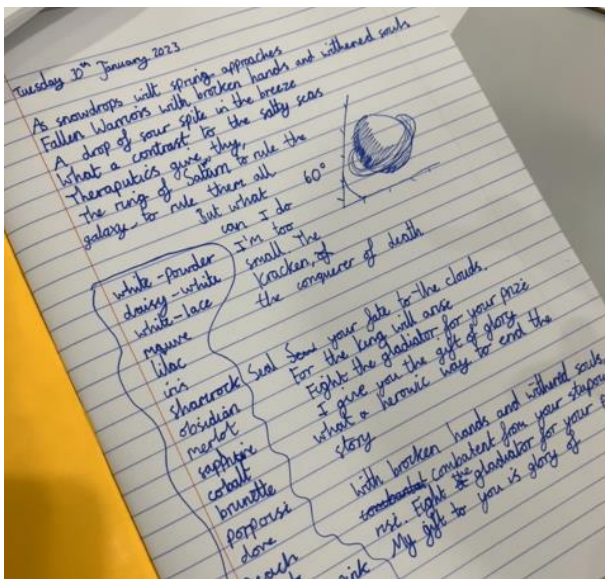 Tuesday 30th January 2023
As snowdrops wilt spring approaches
Fallen Warriors with brocken hands and withered souls
A drop of sour spite in the breeze
What a contrast to the salty seas
Theraputics give thy,
The ring of Saturn to rule the
galaxy to rule them all
But what
can I do
I'm too
small The
Kracken, of
the conquerer of death
60°
white-powder
daisy-white
white-lace
mauve
lilac
iris
shamrock
obsidian
merlot
sapphire
cobalt
brunette
porpoise
dove
Seal your fate to the clouds.
For the king will arise
Fight the gladiator for your prize
I give you the gift of glory
What a heroic way to end the
story
With brocken hands and withered souls
combatent from your
rise. Fight gladiator for your
My gift to you is glory of